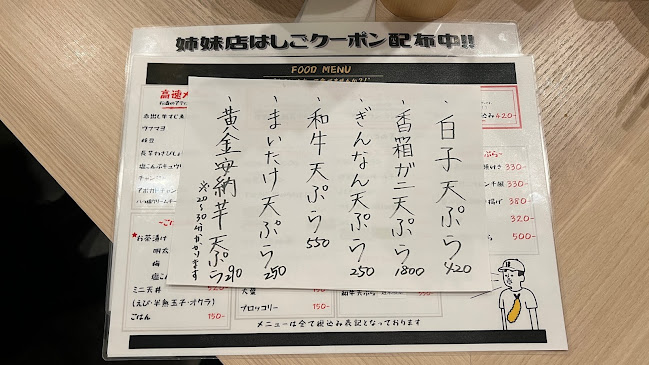 姉妹店はしごクーポン配布中!!
FOOD MENU
・白子天ぷら 420
・香箱ガニ天ぷら 1800
・ぎんなん天ぷら 250
・和牛天ぷら 550
・まいたけ天ぷら 250
・黄金安納芋天ぷら 290
※20~30分かかります
高速
ウフマヨ
枝豆
420-
330-
330-
380-
320-
500-
お茶漬け
明太
梅
ミニ天丼 520
(えび・半熟玉子・オクラ)
ごはん 150-
大葉 150-
ブロッコリー 150-
メニューは全て税込み表記となっております